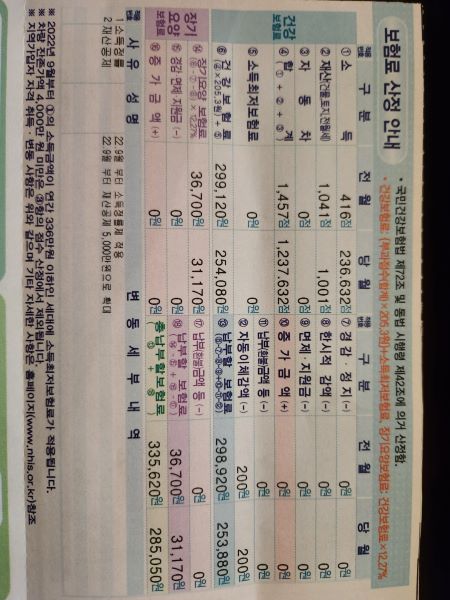 보험료 산정 안내
* 국민건강보험법 제72조 및 동법 시행령 제42조에 의거 산정함.
* 건강보험료: (부과점수합계×205.3원)+소득최저보험료, 장기요양보험료: 건강보험료×12.27%
적용 번호 구분 전월 당월 적용 번호 구분 전월 당월
건강보험
① 소득 416점 236.632점 ⑦ 경감·정지(-) 0원 0원
② 재산(건물,토지,전월세) 1,041점 1,001점 ⑧ 한시적 감액(-) 0원 0원
③ 자동차 0점 0점 ⑨ 면제·지원금(-) 0원 0원
④ 합계 (①+②+③) 1,457점 1,237.632점 ⑩ 증가금액(+) 0원 0원
⑤ 소득최저보험료 0원 0원 ⑪ 납부(환불)금액 등(-) 0원 0원
⑫ 자동이체감액(-) 200원 200원
⑥ 건강보험료 (④×205.3원)+⑤ 299,120원 254,080원 ⑬ 납부할 보험료 (⑥-⑦-⑧-⑨+⑩-⑪-⑫) 298,920원 253,880원
장기요양
⑭ 장기요양 보험료 (⑥-⑦)×12.27% 36,700원 31,170원 ⑰ 납부(환불)금액 등(-) 0원 0원
⑮ 경감·면제·지원금(-) 0원 0원 ⑱ 납부할 보험료 (⑭-⑮+⑯-⑰) 36,700원 31,170원
⑯ 증가금액(+) 0원 0원 총납부할보험료 (⑬+⑱) 335,620원 285,050원
적용 번호 사유 성명 변동 세부 내역
1 소득정률 22.9월 부터 소득정률제 적용
2 재산공제 22.9월 부터 재산공제 5,000만원으로 확대
※ 2022년 9월부터 ①의 소득금액이 연간 336만원 이하인 세대에 소득최저보험료가 적용됩니다.
※ 차량 잔존가액 4,000만 원 미만은 ③항의 점수 산정에서 제외됩니다.
※ 지역가입자 자격 취득·변동 사항은 위와 같으며 기타 자세한 사항은 홈페이지(www.nhis.or.kr)참조